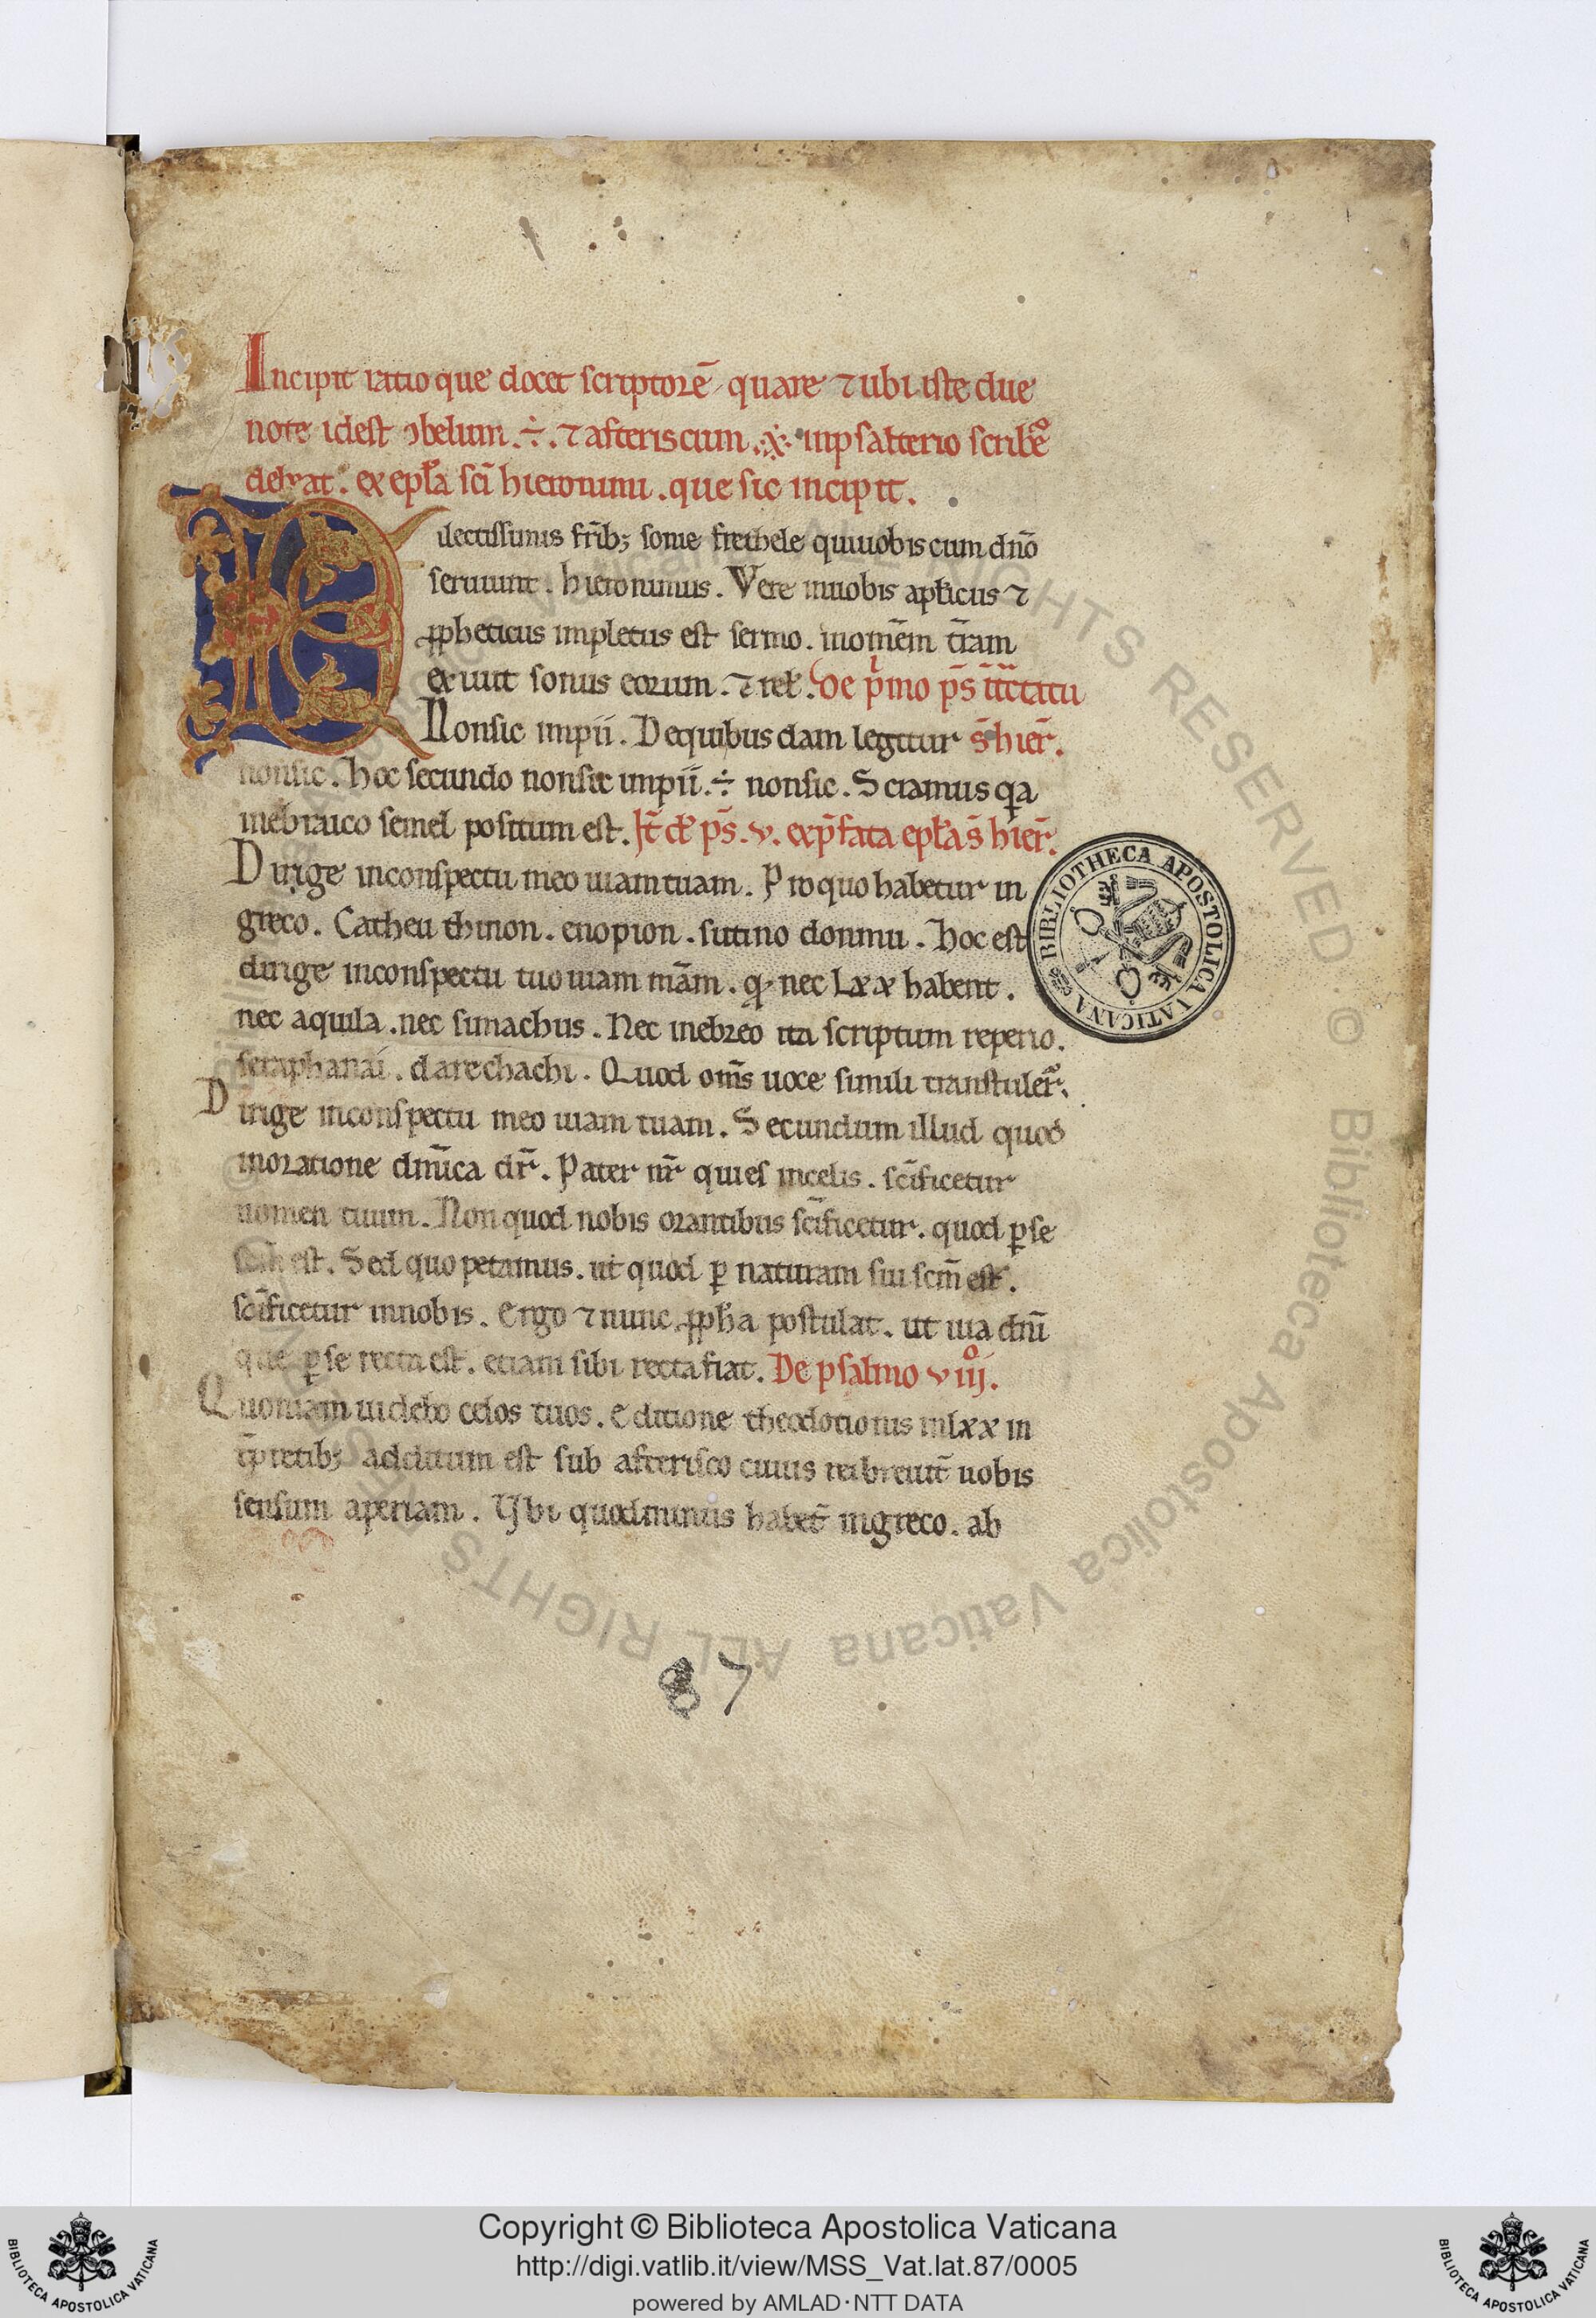 Incipit ratio que docet scriptorē quare ⁊ ubi iste due
note idest obelum .÷. ⁊ asteriscum .※. inpsalterio scribe
debeat. ex epła sc̄i hieronimi. que sic incipit.
ilectissimis fr̄ib; sonie frethele quiuobiscum dn̄o
seruiunt. hieronimus. Vere inuobis apłicus ⁊
ꝓpheticus impletus est sermo. inomēm t̄ram
exiuit sonus eorum. ⁊ reł. De pͥmo ps̄
Nonsic impii. Dequibusdam legitur s̄ hier̄.
nonsic. hoc secundo nonsic impii. ÷ nonsic. Sciamus qͥa
inebraico semel positum est. ps̄. v. exp̄fata epła s̄ hier̄.
Dirige inconspectu meo uiamtuam. Proquo habetur in
greco. Catheu thinon. enopion. sutino donmu. Hoc est
dirige inconspectu tuo uiam mām. qͥ nec Lxx habent.
nec aquila. nec simachus. Nec inebreo ita scriptum reperio.
seraphanai. darechachi. Quod om̄s uoce simili transtuler̄.
Dirige inconspectu meo uiam tuam. Secundum illud quod
inoratione dn̄ica dr̄. Pater nr̄ quies incelis. sc̄ificetur
nomen tuum. Nonquod nobis orantibus sc̄ificetur. quod ꝑse
sc̄m est. Sed quo petamus. ut quod ꝑ naturam sui scm̄ est.
sc̄ificetur innobis. Ergo ⁊ nunc ꝓpħa postulat. ut uia dn̄i
que ꝑse recta est. etiam sibi recta fiat. De psalmo viiͦj.
Quoniam uidebo celos tuos. Editione theodotionis inlxx in
t̄pretib; additum est sub asterisco cuius reibreuit̄ uobis
sensum aperiam. Ybi quodminus habet̄ ingreco. ab
87
BIBLIOTHECA APOSTOLICA VATICANA
© Biblioteca Apostolica Vaticana ALL RIGHTS RESERVED
Copyright © Biblioteca Apostolica Vaticana
http://digi.vatlib.it/view/MSS_Vat.lat.87/0005
powered by AMLAD·NTT DATA
BIBLIOTECA APOSTOLICA VATICANA
BIBLIOTECA APOSTOLICA VATICANA